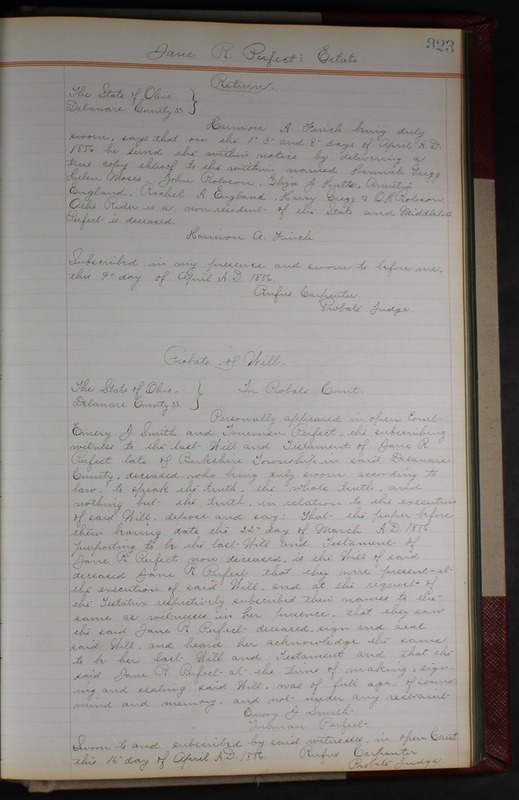 323
Jane R. Perfect's Estate
Return.
The State of Ohio. }
Delaware County ss. }
Harmon A Finch being duly
sworn, says that on the 1st 3d and 8th days of April A.D.
1886 he served the within notice by delivering a
true copy thereof to the within named Hannah Gregg
Helen Moses, John Robson, Eliza J
England. Rachel A England. Harry Gregg & O.H. Robson
Rider is a non resident of the State and Middleton
Perfect is deceased.
Harmon A. Finch
Subscribed in my presence and sworn to before me,
this 9th day of April A.D. 1886.
Rufus Carpenter
Probate Judge.
Probate of Will.
The State of Ohio. } In Probate Court.
Delaware County ss. }
Personally appeared in open Court
Emery J. Smith and Truman Perfect, the subscribing
witness to the last Will and Testament of Jane R.
Perfect late of Berkshire Township in said Delaware
County, deceased, who being duly sworn according to
law, to speak the truth, the whole truth, and
nothing but the truth, in relation to the execution
of said Will, depose and say: That the paper before
them bearing date the 22nd day of March A.D. 1886
purporting to be the last Will and Testament of
Jane R. Perfect now deceased, is the Will of said
deceased Jane R. Perfect that they were present at
the execution of said Will, and at the request of
the Testatrix respectively subscribed their names to the
same as witnesses in her presence, that they saw
the said Jane R. Perfect deceased, sign and seal
said Will, and heard her acknowledge the same
to be her last Will and Testament and that the
said Jane R. Perfect at the time of making, sign-
ing and sealing said Will, was of full age, of sound
mind and memory and not under any restraint
Emery J. Smith
Truman Perfect
Sworn to and subscribed by said witnesses, in open Court
this 15th day of April A.D. 1886. Rufus Carpenter
Probate Judge